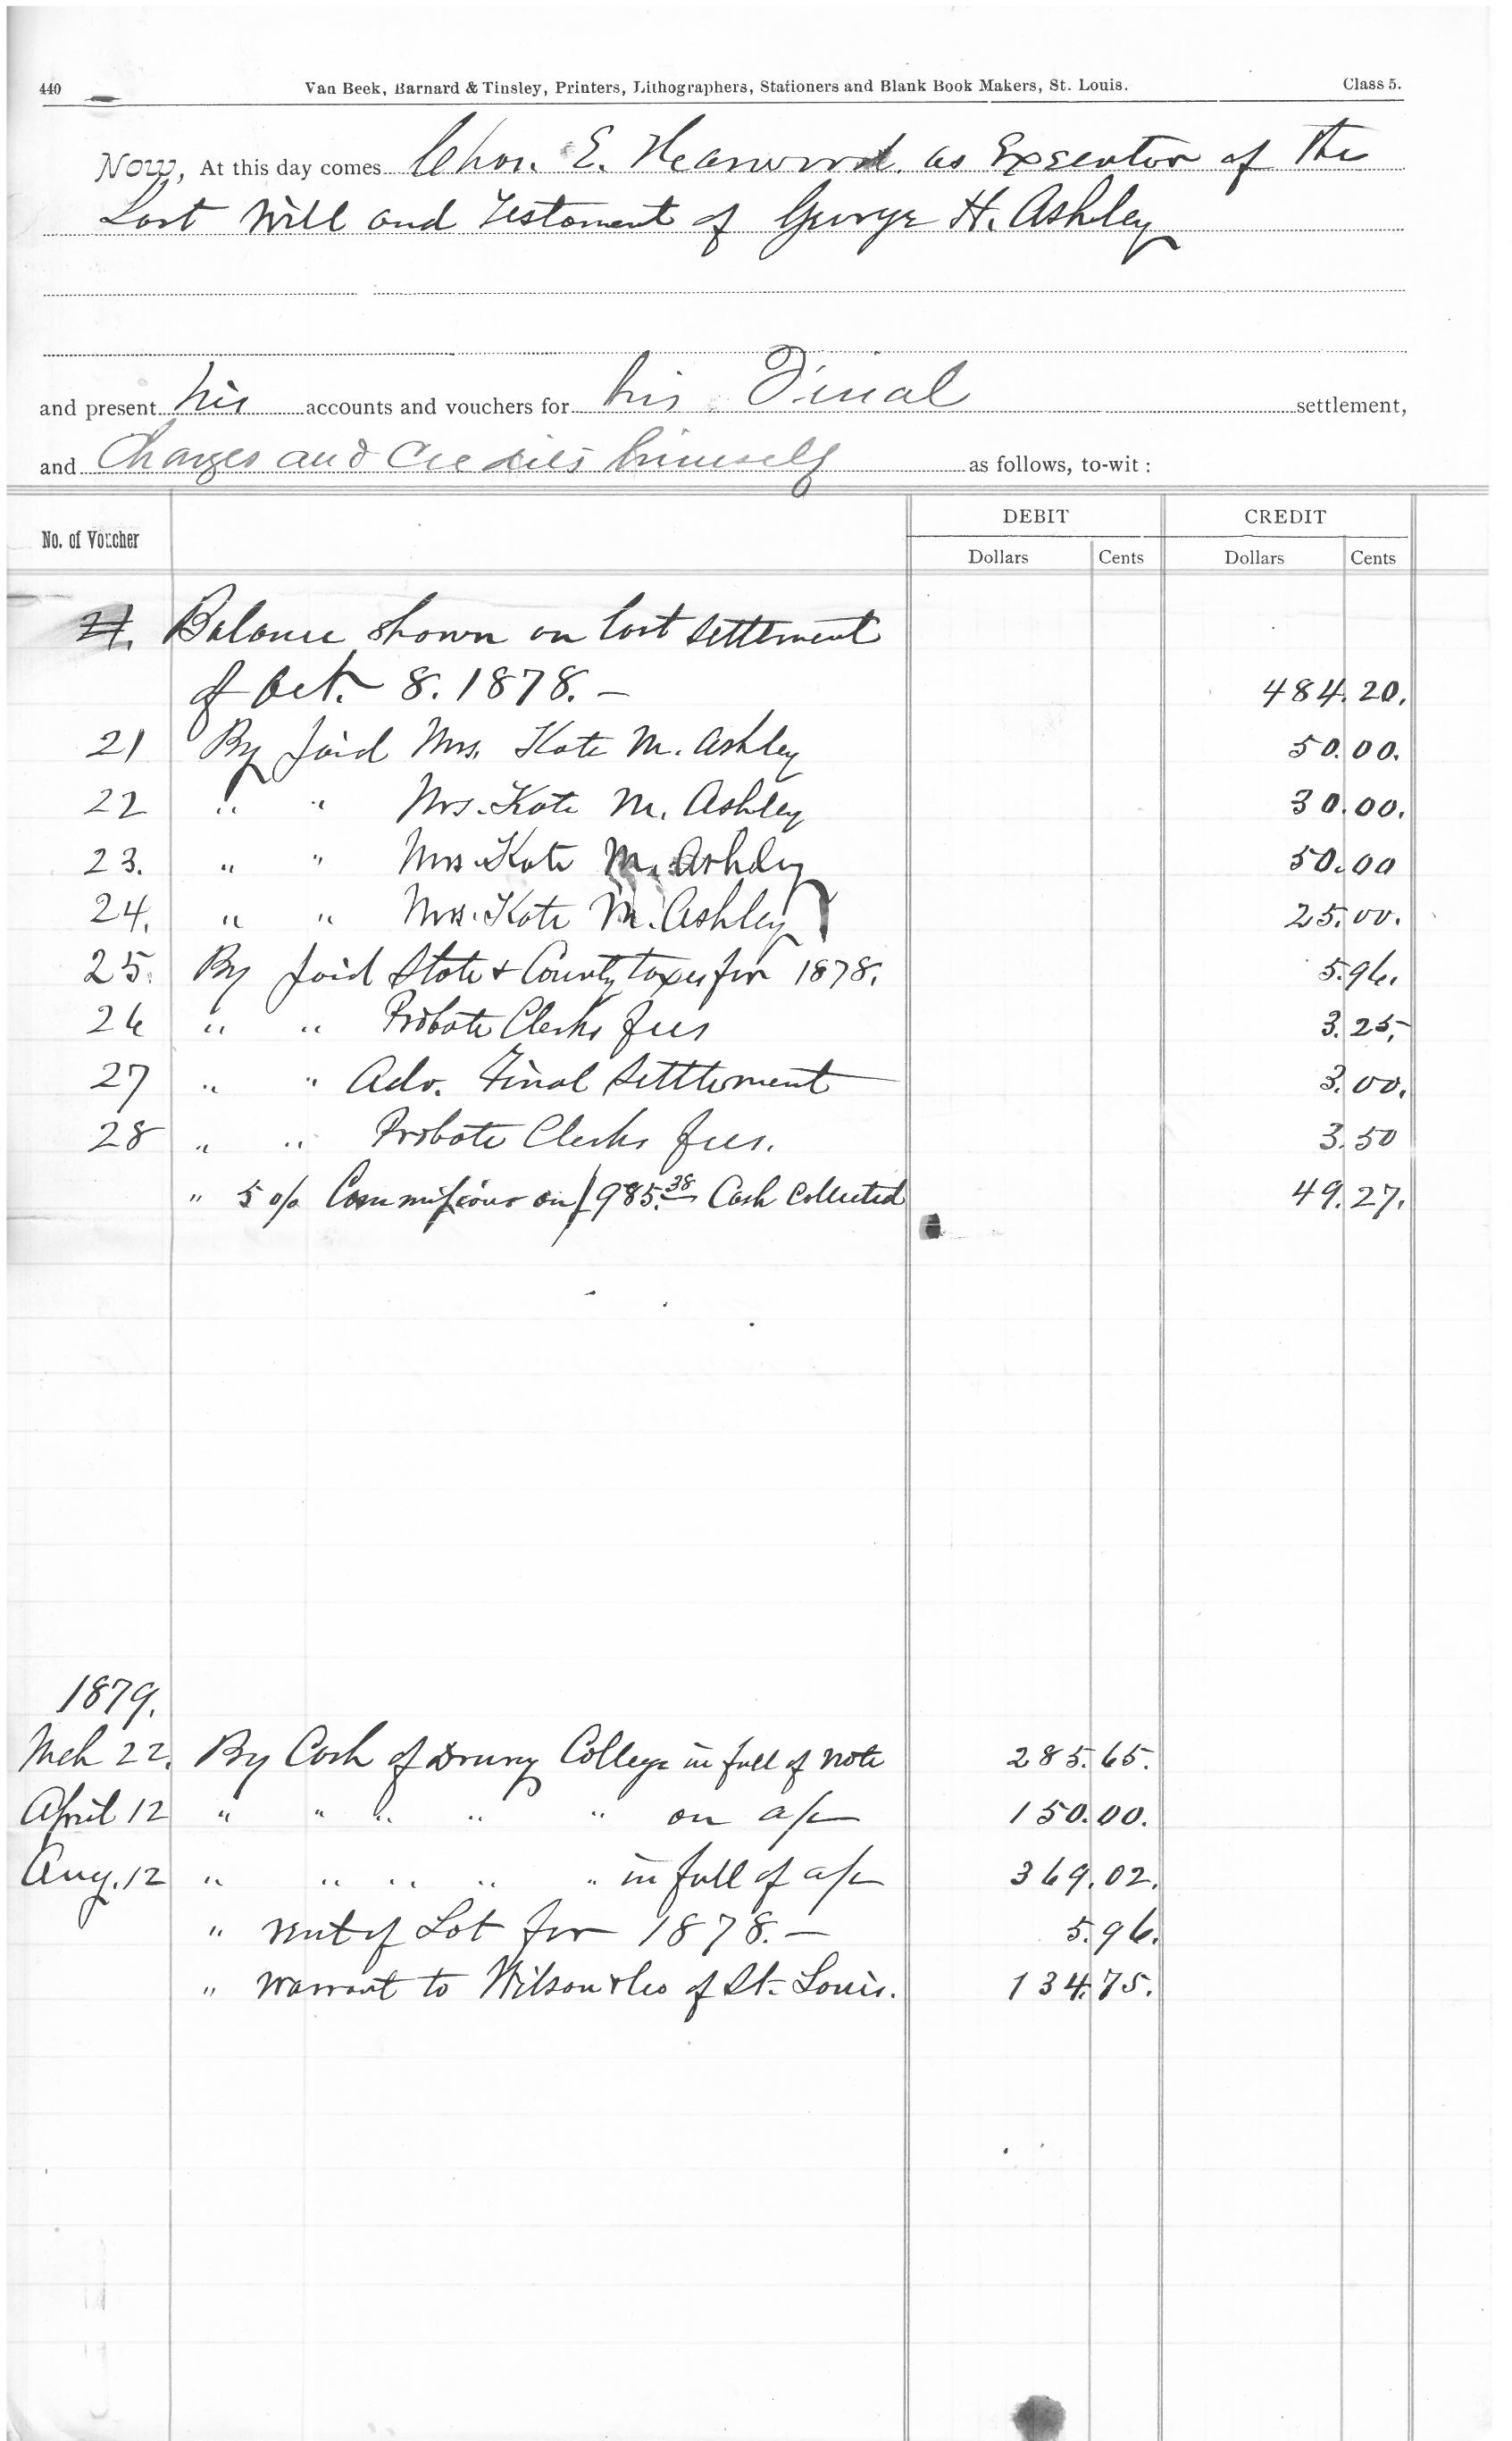 440 Van Beek, Barnard & Tinsley, Printers, Lithographers, Stationers and Blank Book Makers, St. Louis. Class 5.
Now, At this day comes Chas. E. Harwood. as Executor of the
Last Will and Testament of George H. Ashley
and present his accounts and vouchers for his Final settlement,
and Charges and Credits himself as follows, to-wit:
No. of Voucher DEBIT CREDIT
Dollars Cents Dollars Cents
21. Balance shown on last settlement
of Oct. 8. 1878. — 484.20.
21 By paid Mrs. Kate M. Ashley 50.00.
22 " " Mrs. Kate M. Ashley 30.00.
23. " " Mrs. Kate M. Ashley 50.00
24. " " Mrs. Kate M. Ashley 25.00.
25. By paid State & County taxes for 1878. 5.96.
26 " " Probate Clerks fees 3.25.
27 " " Adv. Final Settlement 3.00.
28 " " Probate Clerks fees. 3.50
" 5 o/o Commissions on 985.38 Cash Collected 49.27.
1879.
Mch 22. By Cash of Drury College in full of note 285.65.
April 12 " " " " " on a/c 150.00.
Aug. 12 " " " " " in full of a/c 369.02.
" rent of Lot for 1878. — 5.96.
" Warrant to Wilson & Co of St. Louis. 134.75.